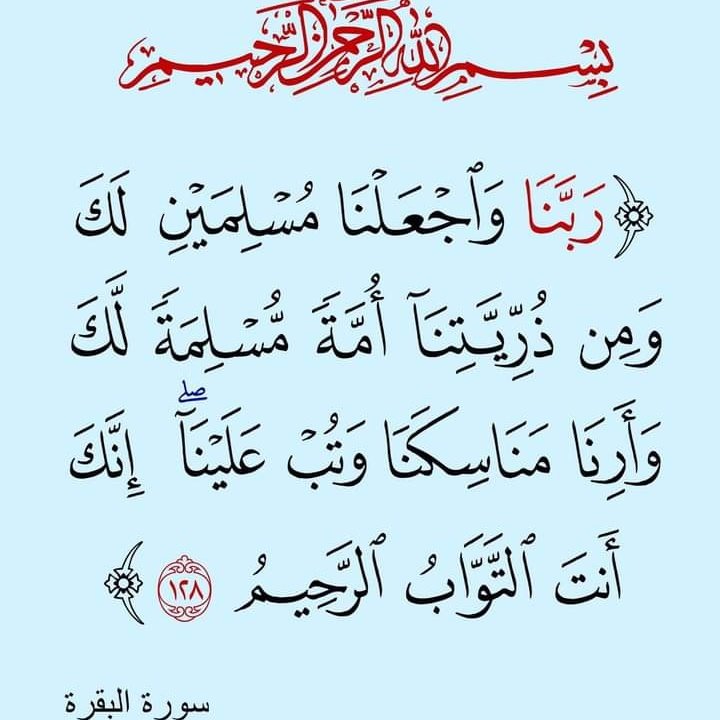 بِسْمِ اللَّهِ الرَّحْمَٰنِ الرَّحِيمِ
﴿رَبَّنَا وَٱجْعَلْنَا مُسْلِمَيْنِ لَكَ
وَمِن ذُرِّيَّتِنَآ أُمَّةً مُّسْلِمَةً لَّكَ
وَأَرِنَا مَنَاسِكَنَا وَتُبْ عَلَيْنَآ ۖ إِنَّكَ
أَنتَ ٱلتَّوَّابُ ٱلرَّحِيمُ ١٢٨﴾
سورة البقرة